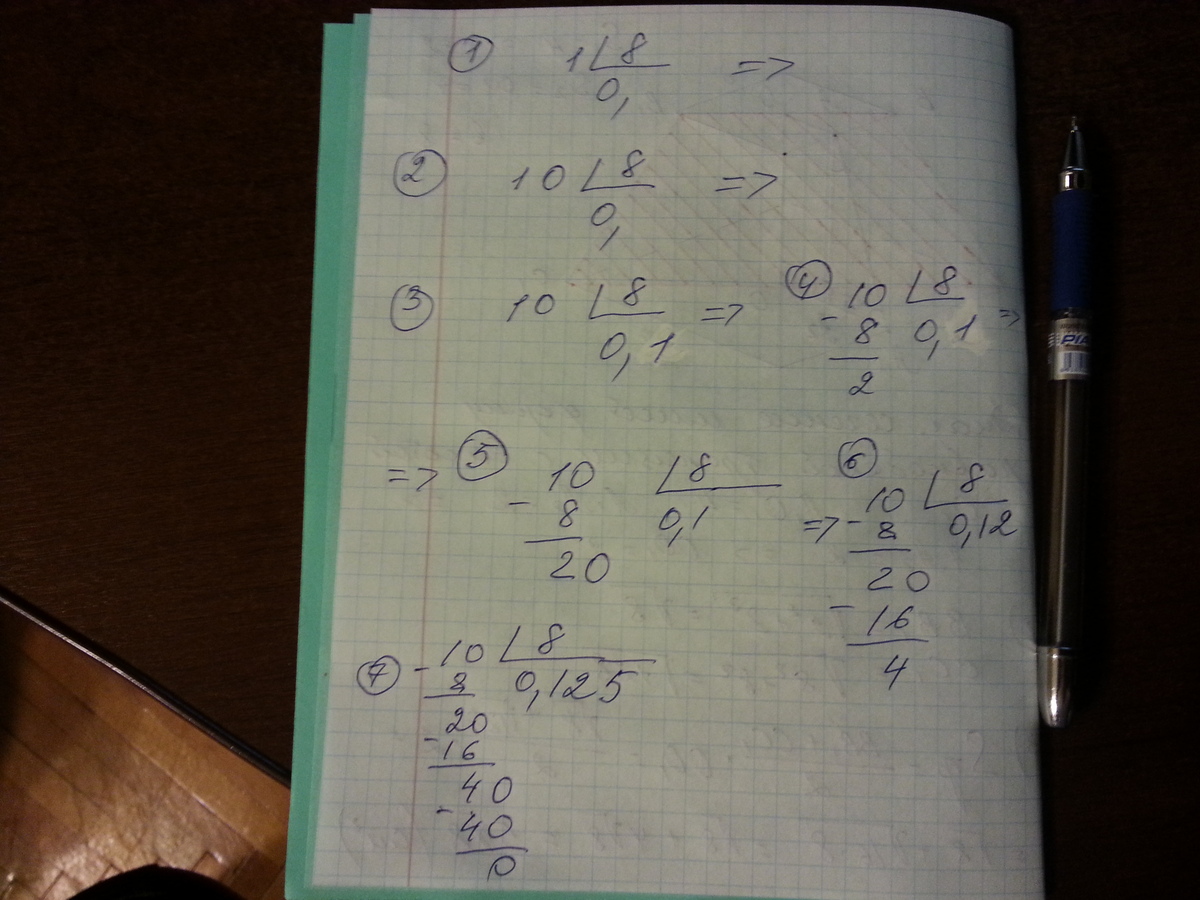 ① 1 8 =>
0,
② 10 8 =>
0,
③ 10 8 =>
0,1
④ 10 8
- 8 0,1 =>
2
=> ⑤ 10 8
- 8 0,1
20
⑥
=> - 10 8
8 0,12
20
- 16
4
⑦ - 10 8
8 0,125
20
- 16
40
- 40
0